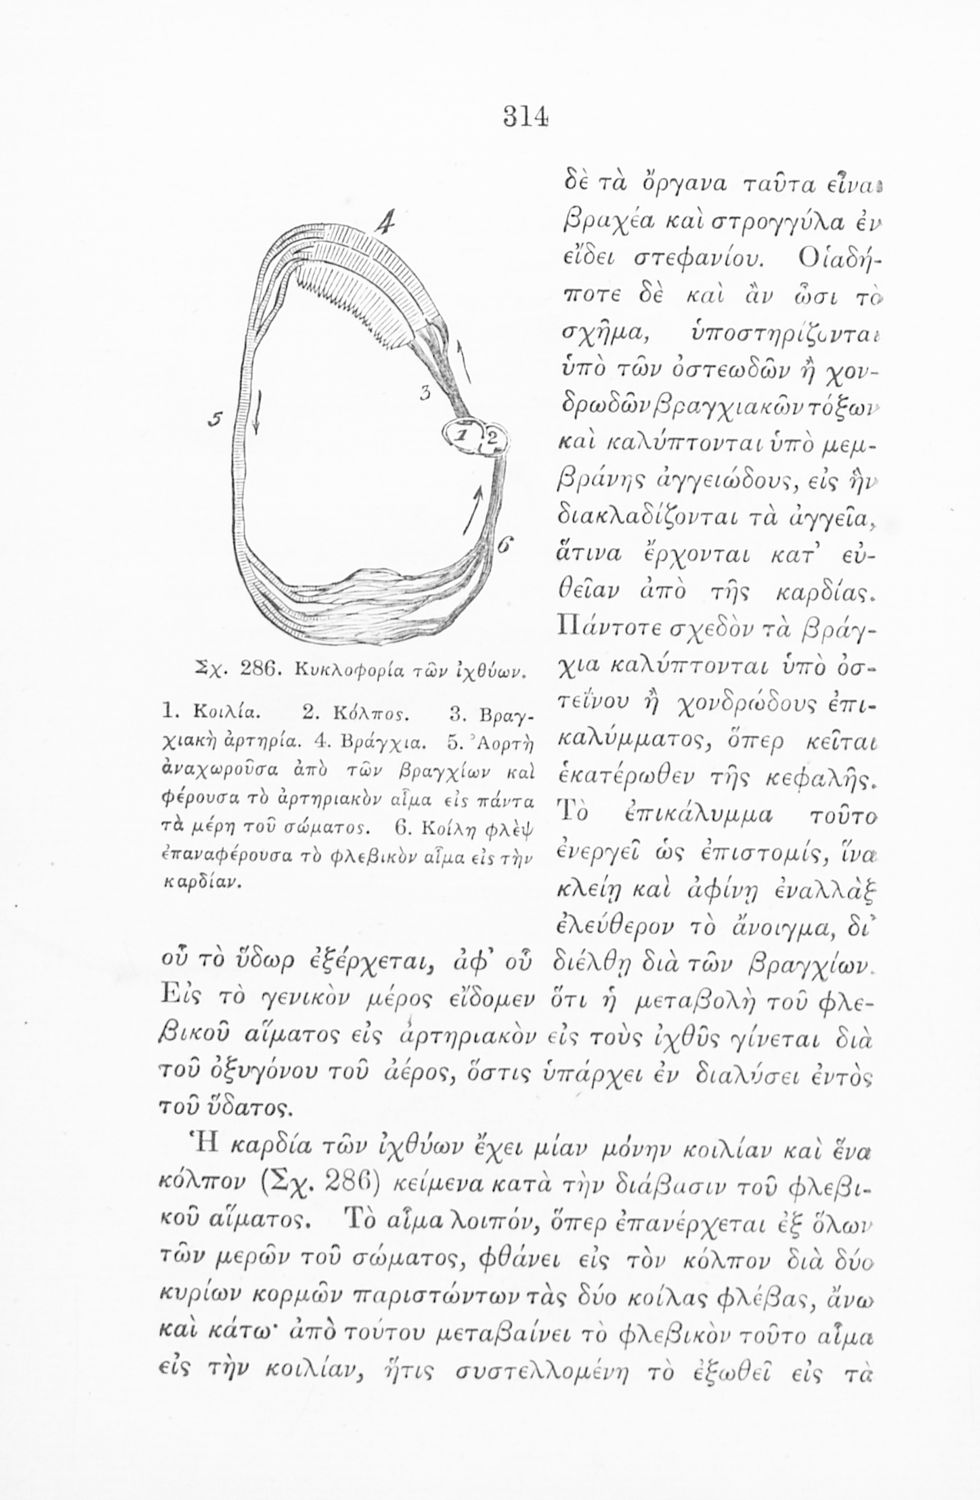 314
4
3
1
2
5
6
Σχ. 286. Κυκλοφορία τῶν ἰχθύων.
1. Κοιλία. 2. Κόλπος. 3. Βραγ-
χιακὴ ἀρτηρία. 4. Βράγχια. 5. Ἀορτὴ
ἀναχωροῦσα ἀπὸ τῶν βραγχίων καὶ
φέρουσα τὸ ἀρτηριακὸν αἷμα εἰς πάντα
τὰ μέρη τοῦ σώματος. 6. Κοίλη φλὲψ
ἐπαναφέρουσα τὸ φλεβικὸν αἷμα εἰς τὴν
καρδίαν.
δὲ τὰ ὄργανα ταῦτα εἶναι
βραχέα καὶ στρογγύλα ἐν
εἴδει στεφανίου. Οἱαδή-
ποτε δὲ καὶ ἂν ὦσι τὸ
σχῆμα, ὑποστηρίζονται
ὑπὸ τῶν ὀστεωδῶν ἢ χον-
δρωδῶν βραγχιακῶν τόξων
καὶ καλύπτονται ὑπὸ μεμ-
βράνης ἀγγειώδους, εἰς ἣν
διακλαδίζονται τὰ ἀγγεῖα,
ἅτινα ἔρχονται κατ’ εὐ-
θεῖαν ἀπὸ τῆς καρδίας.
Πάντοτε σχεδὸν τὰ βράγ-
χια καλύπτονται ὑπὸ ὀσ-
τεΐνου ἢ χονδρώδους ἐπι-
καλύμματος, ὅπερ κεῖται
ἑκατέρωθεν τῆς κεφαλῆς.
Τὸ ἐπικάλυμμα τοῦτο
ἐνεργεῖ ὡς ἐπιστομίς, ἵνα
κλείῃ καὶ ἀφίνῃ ἐναλλὰξ
ἐλεύθερον τὸ ἄνοιγμα, δι’
οὗ τὸ ὕδωρ ἐξέρχεται, ἀφ’ οὗ διέλθῃ διὰ τῶν βραγχίων.
Εἰς τὸ γενικὸν μέρος εἴδομεν ὅτι ἡ μεταβολὴ τοῦ φλε-
βικοῦ αἵματος εἰς ἀρτηριακὸν εἰς τοὺς ἰχθῦς γίνεται διὰ
τοῦ ὀξυγόνου τοῦ ἀέρος, ὅστις ὑπάρχει ἐν διαλύσει ἐντὸς
τοῦ ὕδατος.
Ἡ καρδία τῶν ἰχθύων ἔχει μίαν μόνην κοιλίαν καὶ ἕνα
κόλπον (Σχ. 286) κείμενα κατὰ τὴν διάβασιν τοῦ φλεβι-
κοῦ αἵματος. Τὸ αἷμα λοιπόν, ὅπερ ἐπανέρχεται ἐξ ὅλων
τῶν μερῶν τοῦ σώματος, φθάνει εἰς τὸν κόλπον διὰ δύο
κυρίων κορμῶν παριστώντων τὰς δύο κοίλας φλέβας, ἄνω
καὶ κάτω· ἀπὸ τούτου μεταβαίνει τὸ φλεβικὸν τοῦτο αἷμα
εἰς τὴν κοιλίαν, ἥτις συστελλομένη τὸ ἐξωθεῖ εἰς τὰ